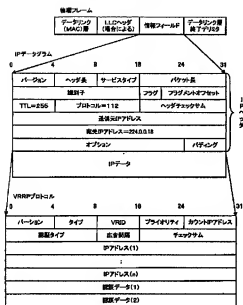 情報フレーム
データリンク
(MAC)層
LLCヘッダ
(場合による)
情報フィールド
データリンク層
終了デリミタ
IPデータグラム
0 4 8 16 24 31
バージョン ヘッダ長 サービスタイプ パケット長
識別子 フラグ フラグメントオフセット
TTL=255 プロトコル=112 ヘッダチェックサム
送信元IPアドレス
宛先IPアドレス=224.0.0.18
オプション パディング
IPデータ
IPヘッダ
VRRPプロトコル
0 4 8 16 24 31
バージョン タイプ VRID プライオリティ カウントIPアドレス
認証タイプ 広告間隔 チェックサム
IPアドレス(1)
:
IPアドレス(n)
認証データ(1)
認証データ(2)